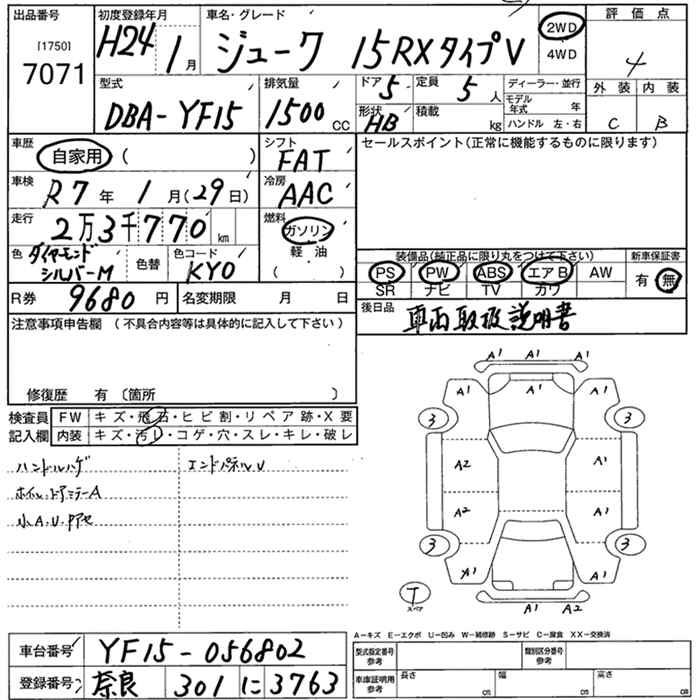 出品番号
[1750]
7071
初度登録年月
H24 1月
車名・グレード
ジューク 15RXタイプV
2WD
4WD
評価点
4
型式
DBA-YF15
排気量
1500 CC
ドア 5
定員 5人
形状 HB
積載 kg
ディーラー・並行
モデル年式 年
ハンドル 左・右
外装 内装
C B
車歴
自家用 ( )
シフト
FAT
セールスポイント(正常に機能するものに限ります)
車検
R7年 1月(29日)
冷房
AAC
走行
2万3千770 km
燃料
ガソリン
軽油
( )
色 ダイヤモンドシルバーM
色替
色コード
KYO
装備品(純正品に限り丸をつけて下さい)
PS PW ABS エアB AW
SR ナビ TV カワ
新車保証書
有 無
R券 9680円
名変期限 月 日
後日品 車両取扱説明書
注意事項申告欄 (不具合内容等は具体的に記入して下さい)
修復歴 有 (箇所 )
検査員記入欄
FW キズ・飛石・ヒビ割・リペア跡・X要
内装 キズ・汚レ・コゲ・穴・スレ・キレ・破レ
ハンドルハゲ エンドパネルU
ホイル・ドアミラーA
小A.U.Pアセ
A1 A1 A1
A1 A1
3 3
A2 A1
A2 A1
3 3
A1 A1
T
スペア
A1 A2
A-キズ E-エクボ U-凹み W-補修跡 S-サビ C-腐食 XX-交換済
車台番号 YF15-056802
登録番号 奈良 301 に 3763
型式指定番号
参考
類別区分番号
参考
車庫証明用
参考
長さ cm 幅 cm 高さ cm